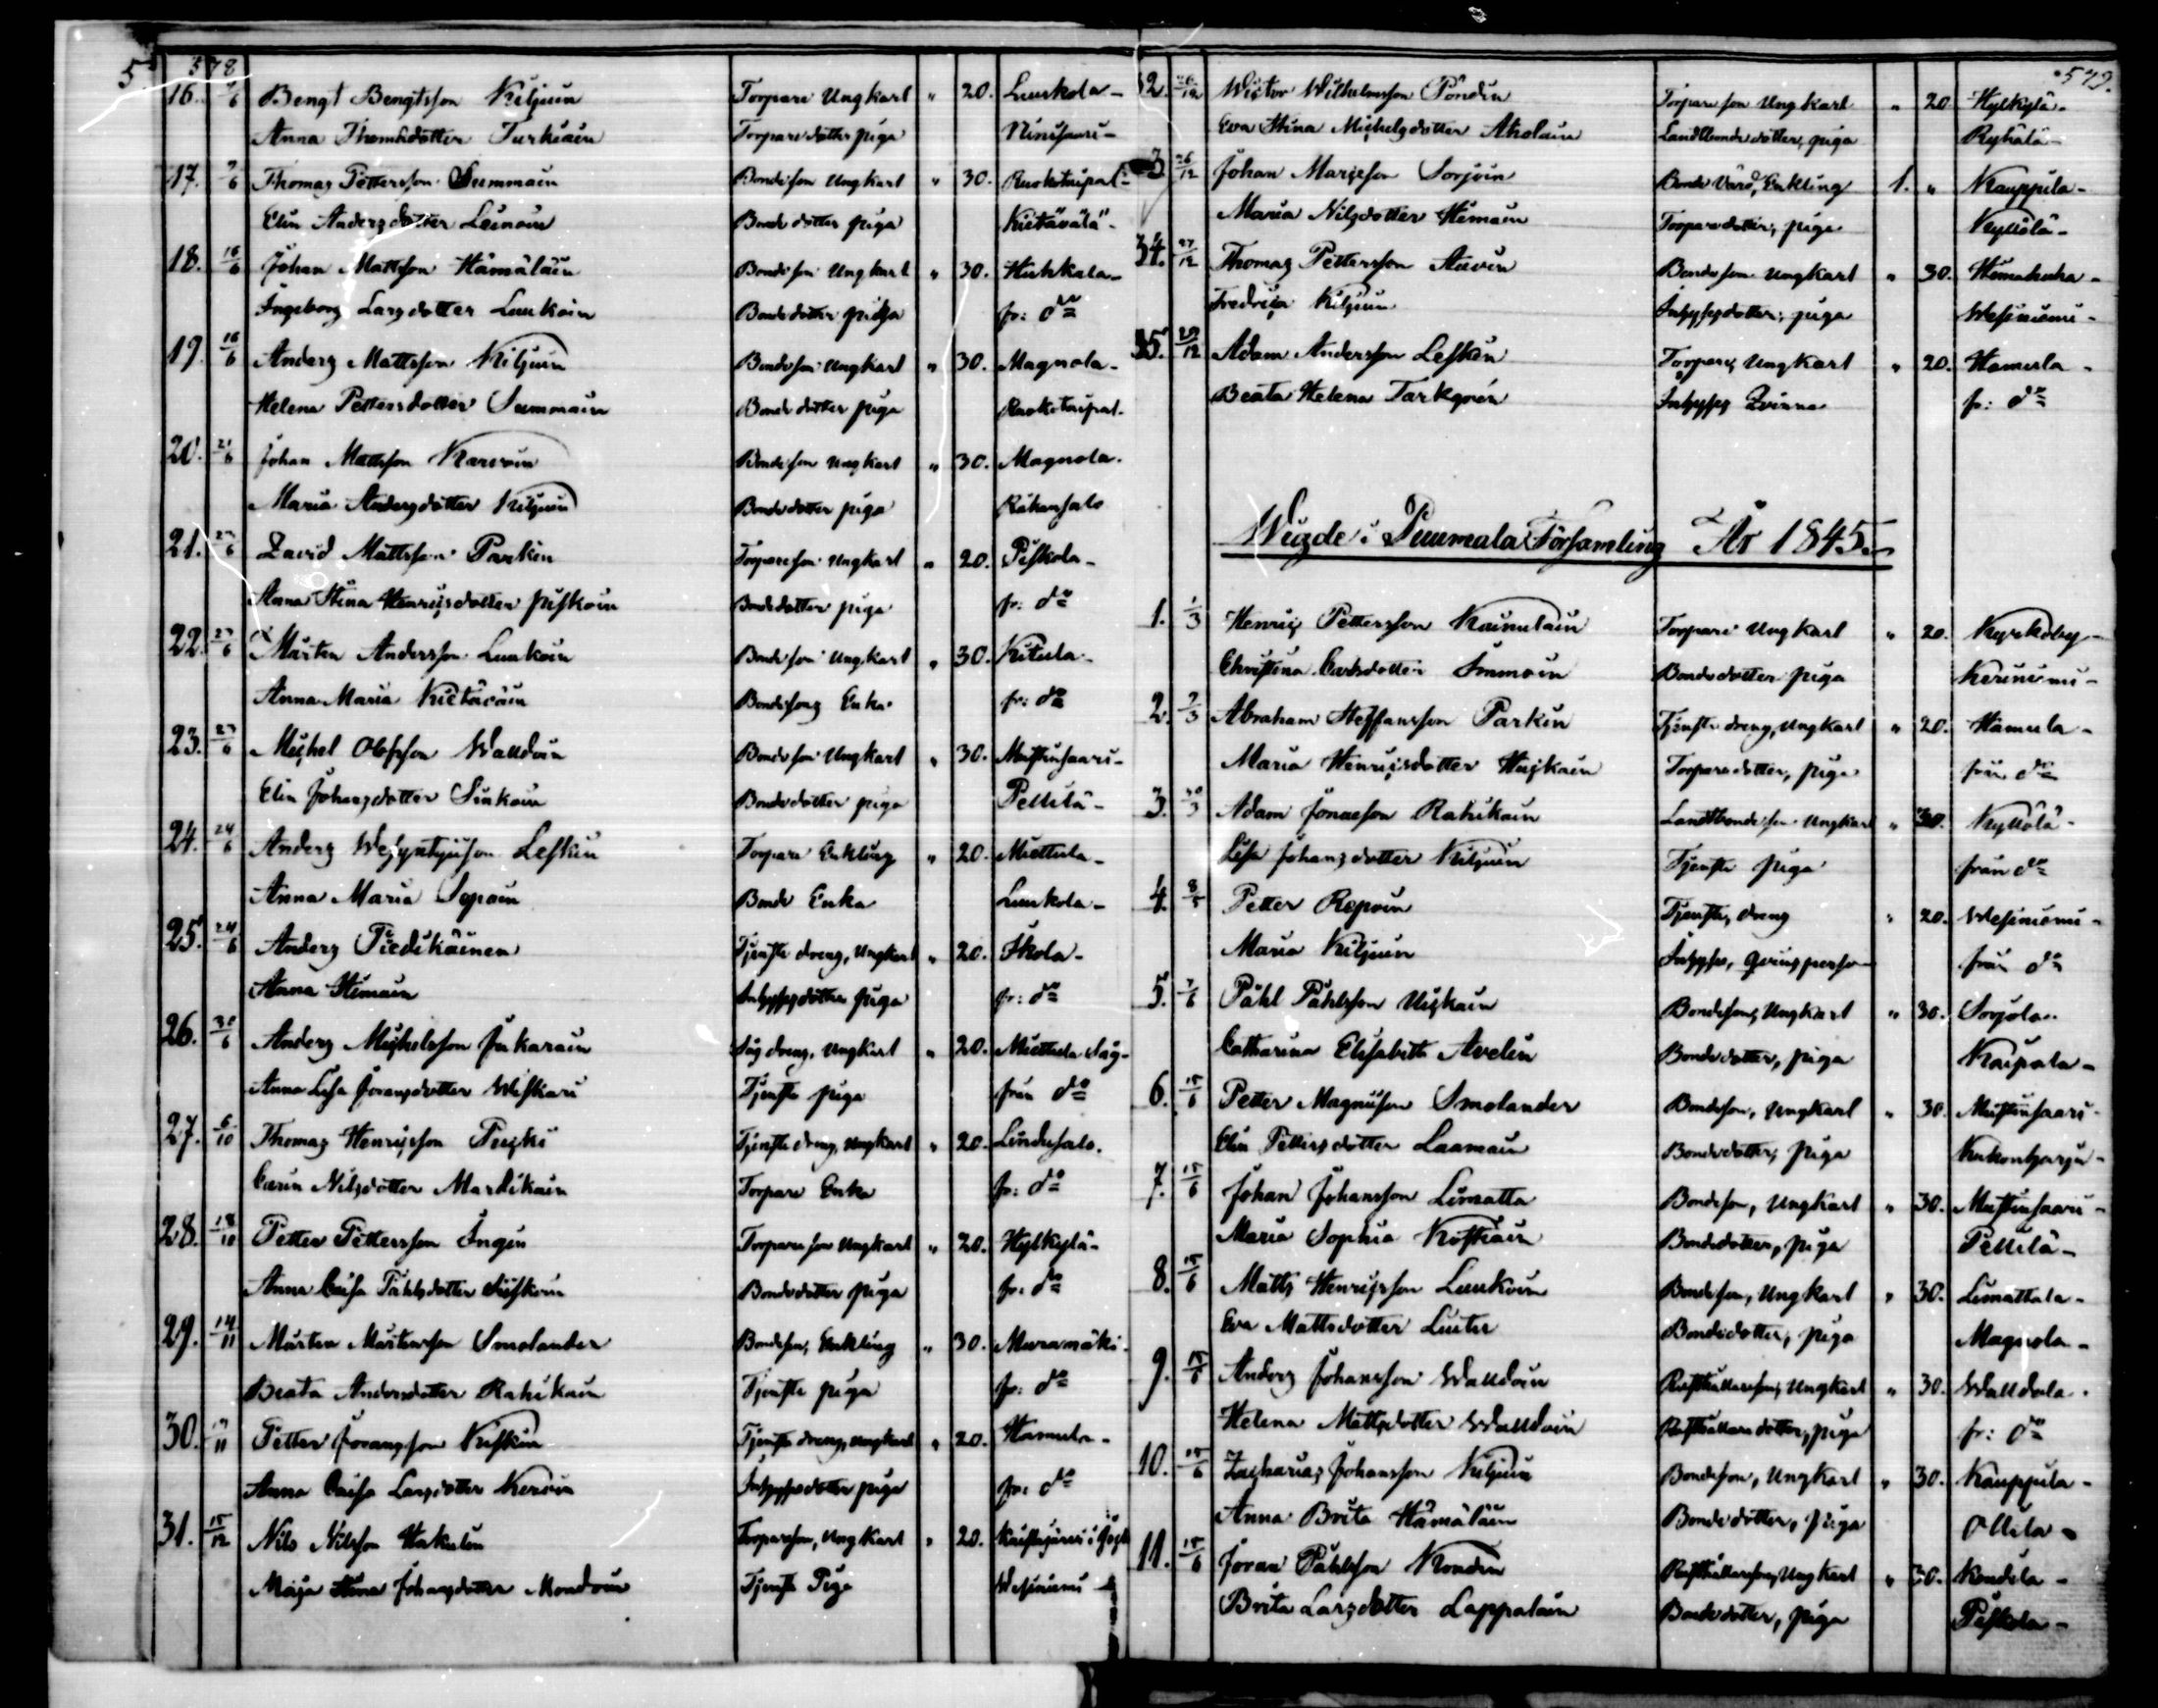 578
16. 7/6 Bengt Bengtsson Kiljuin Torpare Ungkarl " 20. Luukola -
Anna Thomasdotter Turkiain Torparedotter piga Niinisaari -
17. 7/6 Thomas Pettersson Summain Bondeson Ungkarl " 30. Ruokotaipal -
Elin Andersdotter Leinoin Bondedotter piga Kietävälä -
18. 16/6 Johan Mattsson Hämäläin Bondeson Ungkarl " 30. Huhkala -
Ingeborg Larsdotter Luukoin Bondedotter piga fr: do
19. 16/6 Anders Mattsson Kiljuin Bondeson Ungkarl " 30. Magnola -
Helena Pettersdotter Summain Bondedotter piga Ruokotaipal.
20. 21/6 Johan Mattsson Karvoin Bondeson Ungkarl " 30. Magnola.
Maria Andersdotter Kiljuin Bondedotter piga Rökansalo
21. 23/6 David Mattsson Parkin Torpareson Ungkarl " 20. Piskola -
Anna Stina Henricsdotter Piskoin Bondedotter piga fr: do
22. 23/6 Mårten Andersson Luukoin Bondeson Ungkarl " 30. Kitula -
Anna Maria Kietäväin Bondesons Enka fr: do
23. 23/6 Michel Olofsson Walldoin Bondeson Ungkarl " 30. Mustinsaari -
Elin Johansdotter Sinkoin Bondedotter piga Pellilä -
24. 24/6 Anders Leskin Torpare Enkling " 20. Miettula -
Anna Maria Sopain Bonde Enka Luukola -
25. 24/6 Anders Piedikäinen Tjenste dreng, Ungkarl " 20. Ikola -
Anna Himain Inhysesdotter piga fr: do
26. 30/6 Anders Michelsson Jukarain Såg dreng, Ungkarl " 20. Miettula Såg -
Anna Lisa Joransdotter Wiskari Tjenste piga från do
27. 6/10 Thomas Henricsson Puski Tjenste dreng, Ungkarl " 20. Lindusalo.
Carin Nilsdotter Mardikain Torpare Enka fr: do
28. 18/10 Petter Pettersson Ingin Torpareson Ungkarl " 20. Hylkylä -
Anna Caisa Påhlsdotter Bondedotter piga fr: do
29. 14/11 Mårten Mårtensson Smolander Bondeson, Enkling " 30. Muramäki.
Beata Andersdotter Rahikain Tjenste piga fr: do
30. Petter Joransson Kiskin Tjenste dreng, ungkarl " 20. Hamula -
Anna Caisa Larsdotter Keroin Inhysesdotter piga fr: do
31. 15/12 Nils Nilsson Hakulin Torpareson, Ungkarl " 20.
Maja Stina Johansdotter Mondoin Tjenste Piga Wesiniemi
579.
32. 26/12 Wictor Wilhelmsson Pöndin Torpareson Ungkarl " 20 Hylkylä -
Eva Stina Michelsdotter Aholain Landbondedotter, piga Ryhälä -
3 26/12 Johan Maricsson Sorjoin Bonde Värd, Enkling 1. " Kauppila -
Maria Nilsdotter Himain Torparedotter, piga Kyllölä -
34. 27/12 Thomas Pettersson Auvin Bondeson Ungkarl " 30. Himahuha -
Fredrica Kiljuin Inhysesdotter, piga Wesiniemi -
35. 29/12 Adam Andersson Leskin Torpare, Ungkarl " 20. Hamula -
Beata Helena Tarkqvén Inhyses Qvinna fr: do
Wigde i Puumala Församling År 1845.
1. 1/3 Henric Pettersson Kainulain Torpare Ungkarl " 20. Kyrkoby -
Christina Carlsdotter Immoin Bondedotter piga Keriniemi -
2. 9/3 Abraham Steffansson Parkin Tjenste dreng, Ungkarl " 20. Hamula -
Maria Henricsdotter Huskain Torparedotter, piga från do
3. 30/3 Adam Jonasson Rahikain Landtbondeson Ungkarl " 30. Kyllölä -
Lisa Johansdotter Kiljuin Tjenste piga från do
4. 8/5 Petter Repoin Tjenste, dreng " 20. Wesiniemi -
Maria Kiljuin Inhyses, qvinsperson från do
5. 7/6 Påhl Påhlsson Uiskain Bondeson, Ungkarl " 30. Sorjola.
Catharina Elisabeth Avelin Bondedotter, piga Kaipala -
6. 15/6 Petter Magnusson Smolander Bondeson, Ungkarl " 30. Mustinsaari -
Elin Pettersdotter Laamain Bondedotter, piga Kukonharju -
7. 15/6 Johan Johansson Limatta Bondeson, Ungkarl " 30. Mustinsaari -
Maria Sophia Kostiain Bondedotter, piga Pellilä -
8. 15/6 Matts Henricsson Luukoin Bondeson, Ungkarl " 30. Limattala -
Eva Mattsdotter Luuter Bondedotter, piga Magnola -
9. 15/6 Anders Johansson Walldoin Rusthållareson, Ungkarl " 30. Walldala.
Helena Mattsdotter Walldoin Rusthållaredotter, piga fr: do
10. 15/6 Zacharias Johansson Kiljuin Bondeson, Ungkarl " 30. Kauppila -
Anna Brita Hämäläin Bondedotter, piga Ollila -
11. 15/6 Joran Påhlsson Kondin Rusthållareson, Ungkarl " 30. Kondila -
Brita Larsdotter Lappalain Bondedotter, piga Piskola -